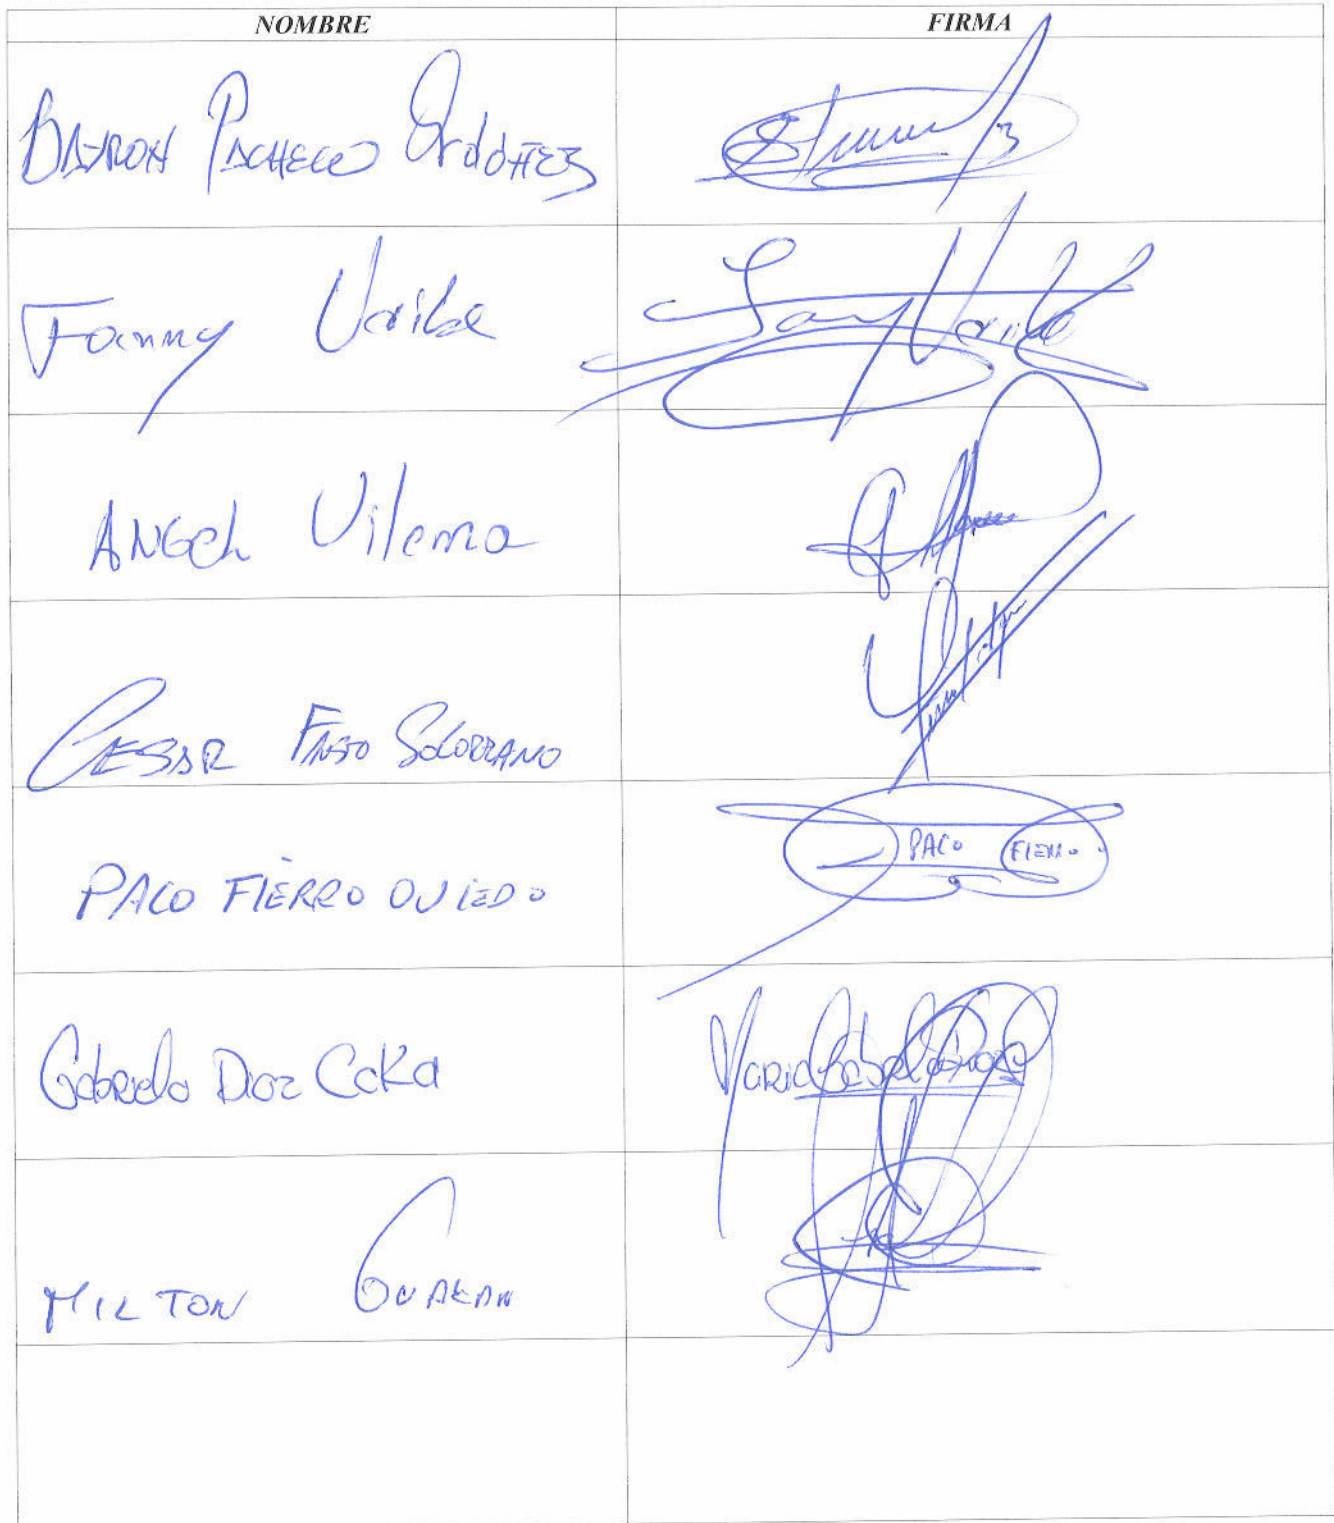 NOMBRE FIRMA
BAYRON PACHECO Ordoñez
Fanny Uribe
ANGEL Vilema
CESAR SOLORZANO
PACO FIERRO OVIEDO PACO FIERRO
Gabriela Diaz CaKa MARIA Gabriela Diaz
MILTON GUALAN